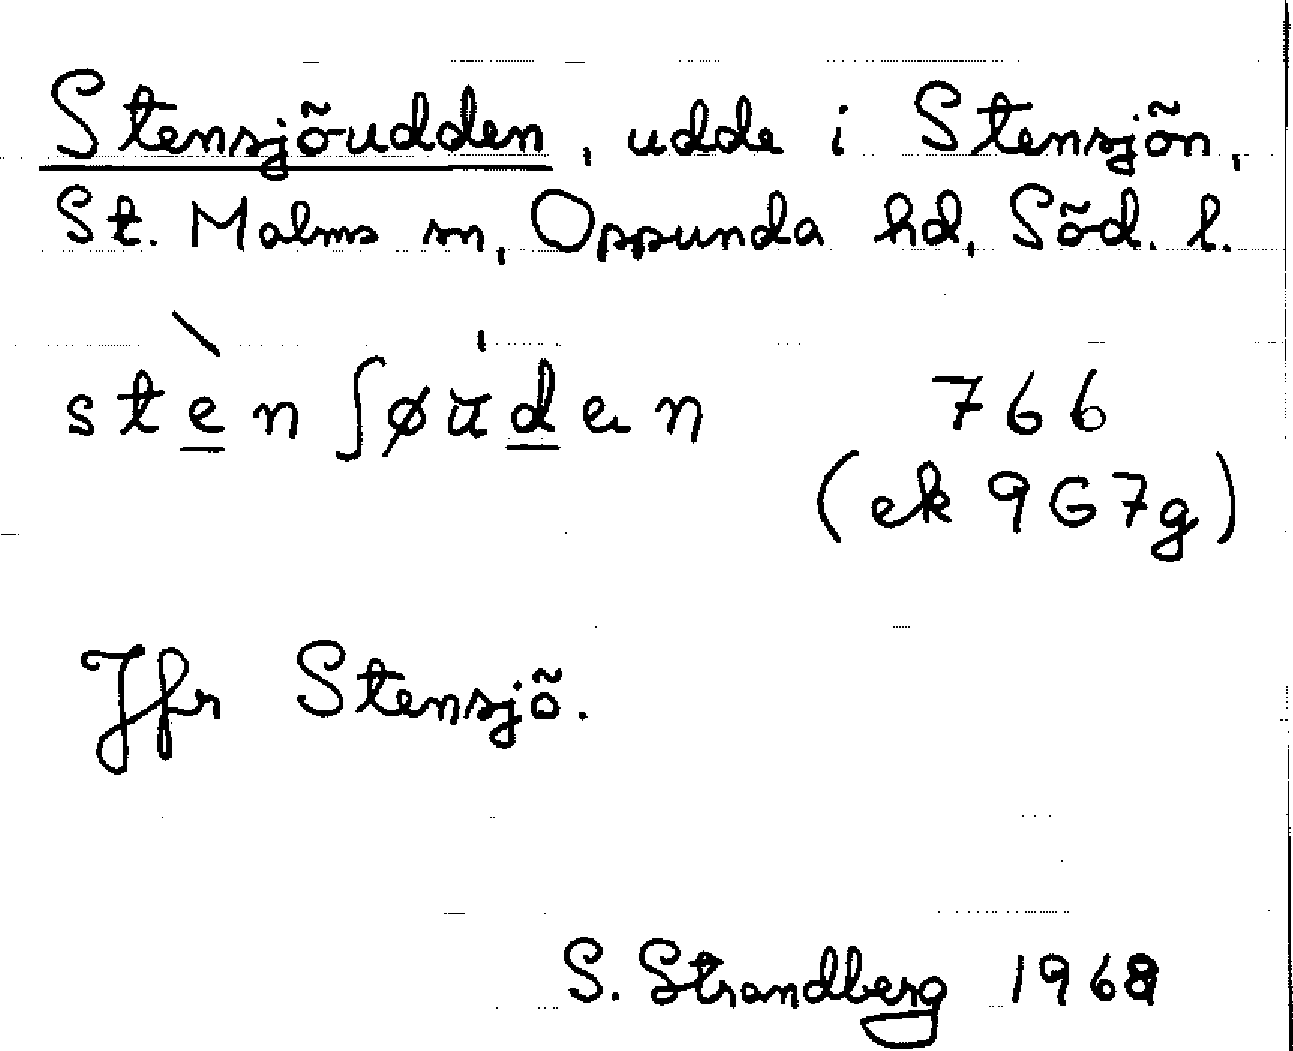 Stensjöudden, udde i Stensjön,
St. Malms sn, Oppunda hd, Söd. l.
stè̲nʃøud̲en 766
(ek 9G7g)
Jfr Stensjö.
S. Strandberg 1968